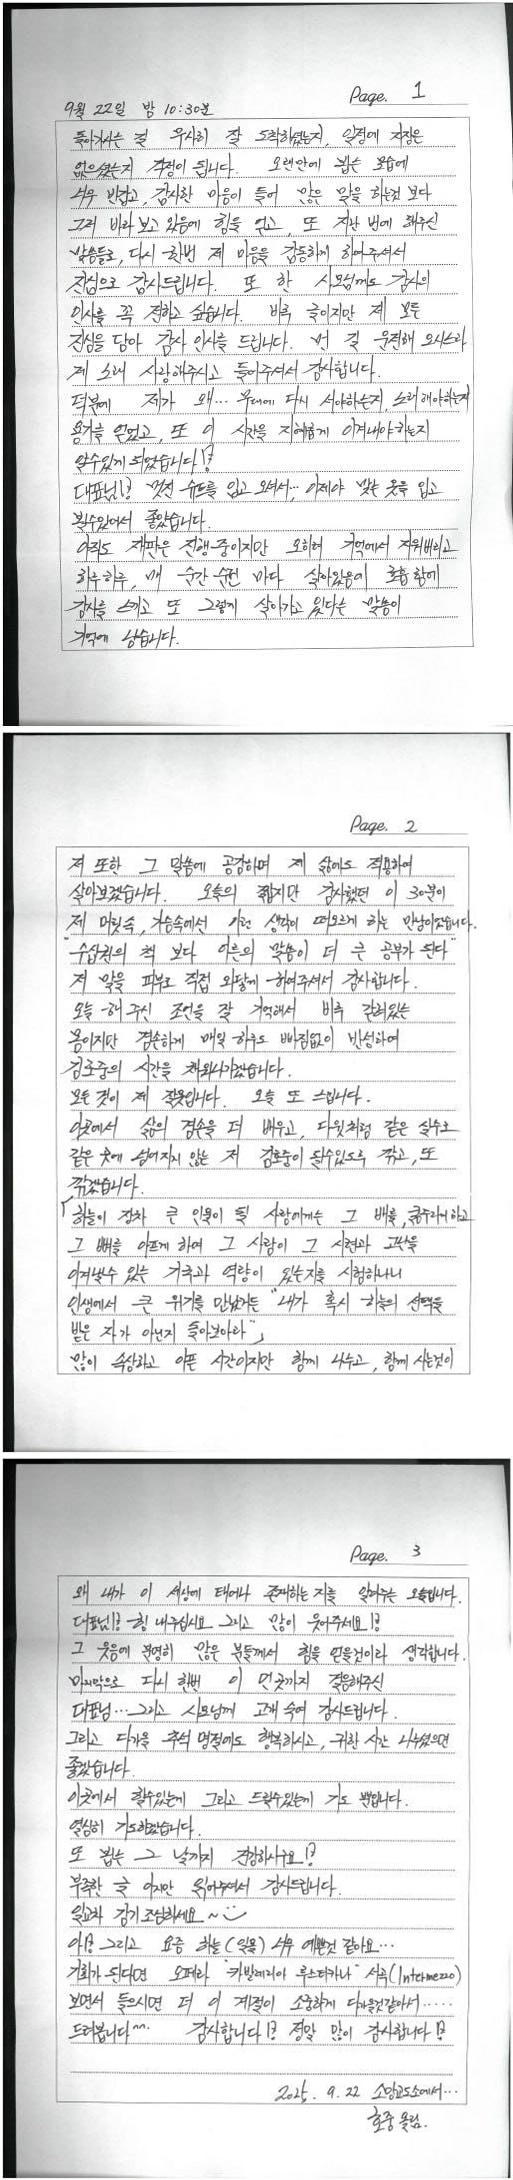 Page. 1
9월 22일 밤 10:30분
돌아가시는 길 무사히 잘 도착하셨는지, 일정에 지장은
없으셨는지 걱정이 됩니다. 오랜만에 뵙는 모습에
너무 반갑고, 감사한 마음이 들어 많은 말을 하는것 보다
그저 바라보고 있음에 힘을 얻고, 또 지난 번에 해주신
말씀들로, 다시 한번 제 마음을 감동하게 하여주셔서
진심으로 감사드립니다. 또 한 사모님께도 감사의
인사를 꼭 전하고 싶습니다. 비록 글이지만 제 모든
진심을 담아 감사 인사를 드립니다. 먼 길 운전해 오시느라
제 노래 사랑해주시고 들어주셔서 감사합니다.
덕분에 제가 왜… 무대에 다시 서야하는지, 노래해야하는지
용기를 얻었고, 또 이 시간을 지혜롭게 이겨내야하는지
알수있게 되었습니다!?
대표님!? 멋진 슈트를 입고 오셔서… 이제야 맞는 옷을 입고
뵐수있어서 좋았습니다.
아직도 재판은 진행중이지만 오히려 기억에서 지워버리고
하루하루, 매 순간 순간 마다 살아있음에 호흡함에
감사를 느끼고 또 그렇게 살아가고 있다는 말씀이
기억에 남습니다.
Page. 2
저 또한 그 말씀에 공감하며 제 삶에도 적용하여
살아보겠습니다. 오늘의 짧지만 감사했던 이 30분이
제 머릿속, 가슴속에서 이런 생각이 떠오르게 하는 만남이었습니다.
"수십권의 책 보다 어른의 말씀이 더 큰 공부가 된다"
저 말을 피부로 직접 와닿게 하여주셔서 감사합니다.
오늘 해 주신 조언을 잘 기억해서 비록 갇혀있는
몸이지만 겸손하게 매일 하루도 빠짐없이 반성하여
김호중의 시간을 채워나가겠습니다.
모든 것이 제 잘못입니다. 오늘 또 느낍니다.
이곳에서 삶의 겸손을 더 배우고, 다윗처럼 같은 실수로
같은 곳에 넘어지지 않는 저 김호중이 될수있도록 깎고, 또
깎겠습니다.
「하늘이 장차 큰 인물이 될 사람에게는 그 배를 굶주리게 하고
그 뼈를 아프게 하여 그 사람이 그 시련과 고난을
이겨낼수 있는 기국과 역량이 있는지를 시험하나니
인생에서 큰 위기를 만났거든 "내가 혹시 하늘의 선택을
받은 자가 아닌지 돌아보아라"」
많이 속상하고 아픈 시간이지만 함께 나누고, 함께 사는것이
Page. 3
왜 내가 이 세상에 태어나 존재하는 지를 일어주는 오늘입니다.
대표님!? 힘 내주십시요 그리고 많이 웃어주세요!?
그 웃음에 분명히 많은 분들께서 힘을 얻을것이라 생각합니다.
마지막으로 다시 한번 이 먼곳까지 걸음해주신
대표님… 그리고 사모님께 고개 숙여 감사드립니다.
그리고 다가올 추석 명절에도 행복하시고, 귀한 시간 나누셨으면
좋겠습니다.
이곳에서 할수있는게 그리고 드릴수있는게 기도 뿐입니다.
열심히 기도하겠습니다.
또 뵙는 그 날까지 건강하시구요!?
부족한 글 이지만 읽어주셔서 감사드립니다.
일교차 감기조심하세요~
아!? 그리고 요즘 하늘(일몰) 너무 예쁜것 같아요…
기회가 된다면 오페라 "카발레리아 루스티카나" 서곡(Intermezzo)
보면서 들으시면 더 이 계절이 소중하게 다가올것같아서……
드려봅니다^^ 감사합니다!? 정말 많이 감사합니다!?
2025. 9. 22 소망교도소에서…
호중 올림.